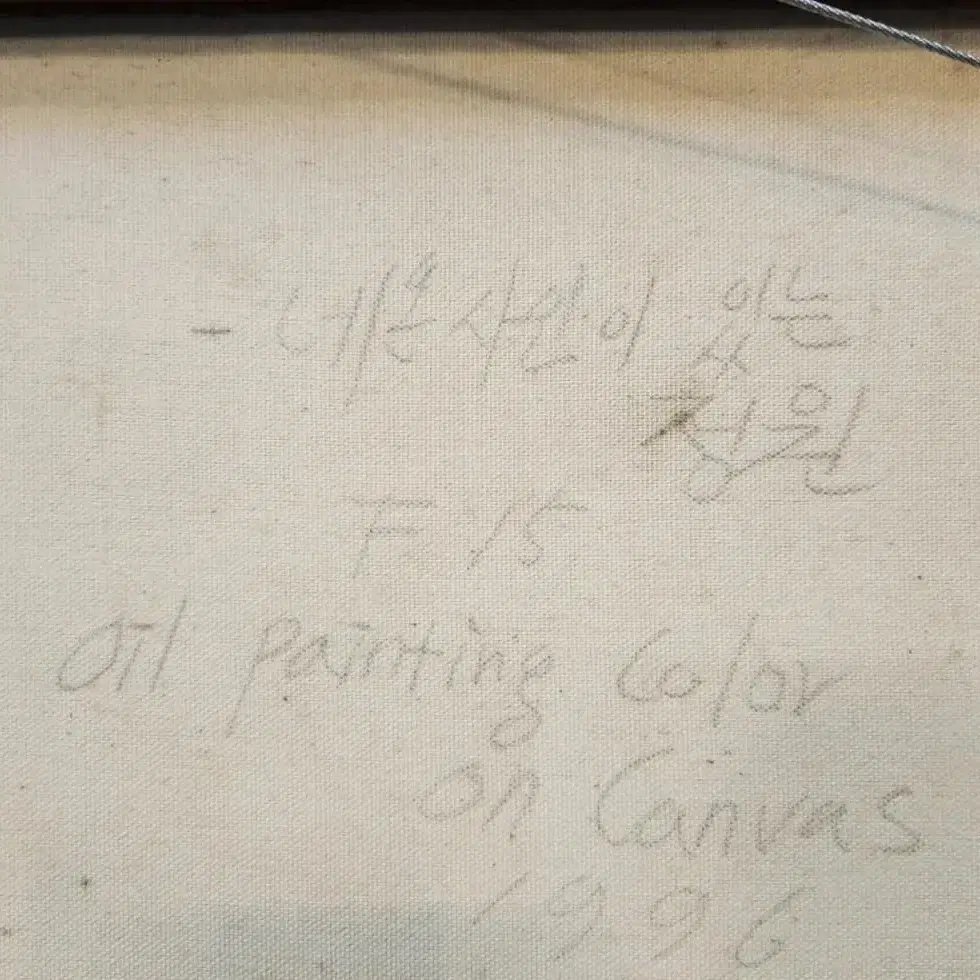 있는
정원
F 15
Oil painting Color
on Canvas
1996